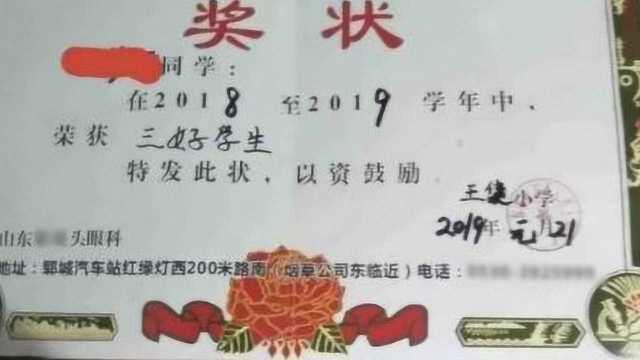 奖状
同学：
在2018至2019学年中、
荣获三好学生
特发此状，以资鼓励
小学
2019年元月21
山东 头眼科
地址：郓城汽车站红绿灯西200米路南（烟草公司东临近）电话：